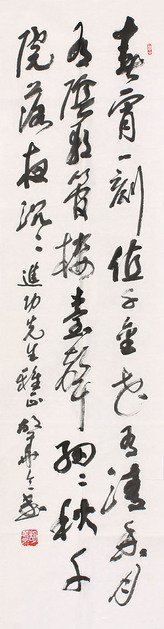 春宵一刻值千金花有清香月
有陰歌管樓臺聲細〻秋千
院落夜沉〻進功先生雅正